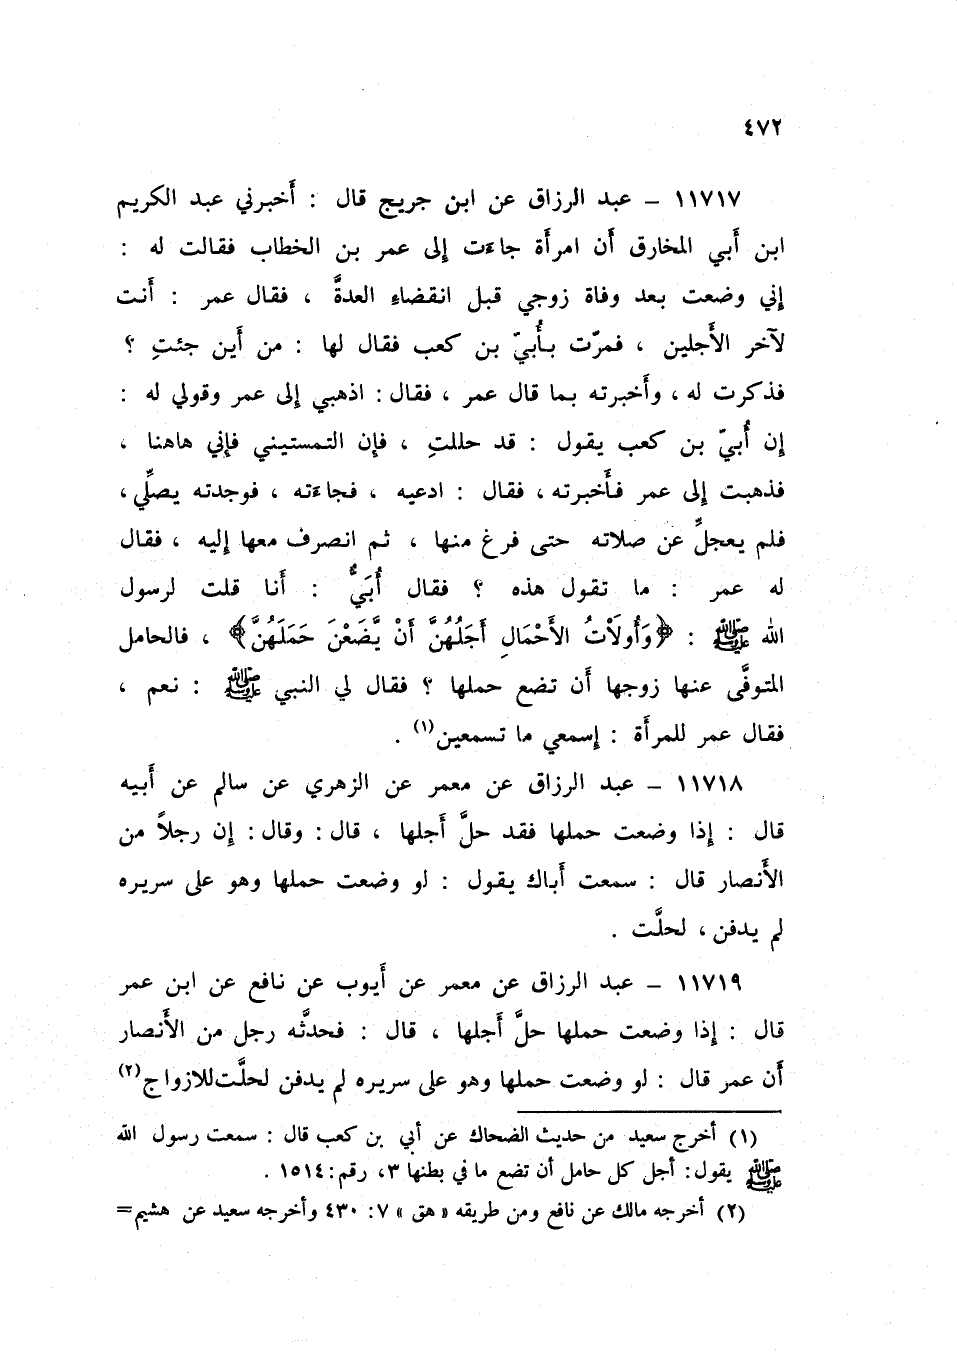 ٤٧٢
١١٧١٧ – عبد الرزاق عن ابن جريج قال : أَخبرني عبد الكريم
ابن أَبي المخارق أَن امرأَة جاءَت إِلى عمر بن الخطاب فقالت له :
إِني وضعت بعد وفاة زوجي قبل انقضاءِ العدةَّ ، فقال عمر : أَنت
لآخر الأَجلين ، فمرّت بأُبيّ بن كعب فقال لها : من أَين جئتِ ؟
فذكرت له ، وأَخبرته بما قال عمر ، فقال : اذهبي إِلى عمر وقولي له :
إِن أُبيّ بن كعب يقول : قد حللتِ ، فإِن التمستيني فإِني هاهنا ،
فذهبت إِلى عمر فأَخبرته ، فقال : ادعيه ، فجاءَته ، فوجدته يصلِّي ،
فلم يعجلِّ عن صلاته حتى فرغ منها ، ثم انصرف معها إِليه ، فقال
له عمر : ما تقول هذه ؟ فقال أُبَيٌّ : أَنا قلت لرسول
الله ﷺ : ﴿وَأُولَاتُ الأَحْمَالِ أَجَلُهُنَّ أَنْ يَّضَعْنَ حَمَلَهُنَّ﴾ ، فالحامل
المتوفَّى عنها زوجها أَن تضع حملها ؟ فقال لي النبي ﷺ : نعم ،
فقال عمر للمرأَة : إِسمعي ما تسمعين(١) .
١١٧١٨ – عبد الرزاق عن معمر عن الزهري عن سالم عن أَبيه
قال : إِذا وضعت حملها فقد حلَّ أَجلها ، قال : وقال : إِن رجلاً من
الأَنصار قال : سمعت أَباك يقول : لو وضعت حملها وهو على سريره
لم يدفن ، لحلَّت .
١١٧١٩ – عبد الرزاق عن معمر عن أَيوب عن نافع عن ابن عمر
قال : إِذا وضعت حملها حلَّ أَجلها ، قال : فحدثَّه رجل من الأَنصار
أَن عمر قال : لو وضعت حملها وهو على سريره لم يدفن لحلَّت للازواج(٢)
(١) أخرج سعيد من حديث الضحاك عن أبي بن كعب قال : سمعت رسول الله
ﷺ يقول : أجل كل حامل أن تضع ما في بطنها ٣، رقم : ١٥١٤ .
(٢) أخرجه مالك عن نافع ومن طريقه « هق » ٧: ٤٣٠ وأخرجه سعيد عن هشيم =